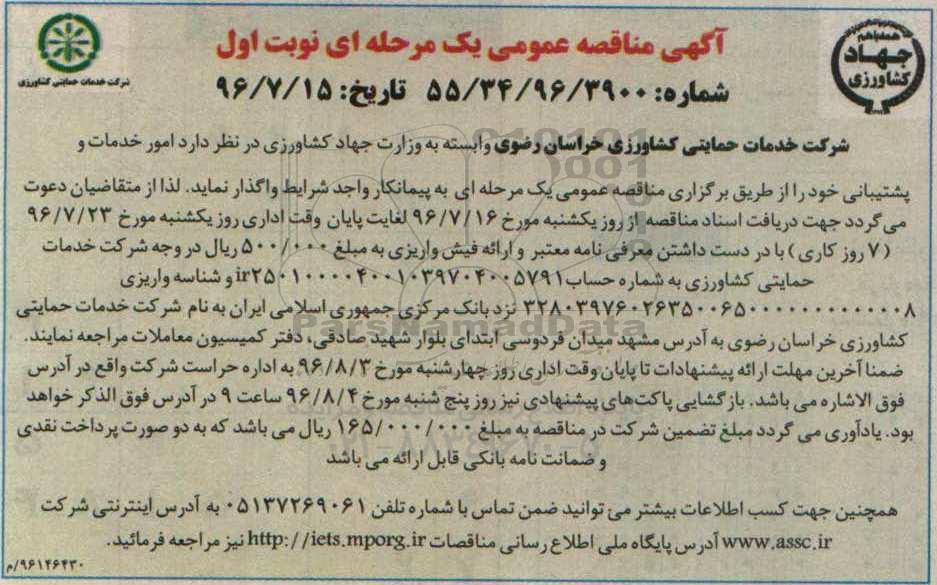 آگهی مناقصه عمومی یک مرحله ای نوبت اول
شماره: ۵۵/۳۴/۹۶/۳۹۰۰ تاریخ: ۹۶/۷/۱۵
همه با هم
جهاد
کشاورزی
شرکت خدمات حمایتی کشاورزی
شرکت خدمات حمایتی کشاورزی خراسان رضوی وابسته به وزارت جهاد کشاورزی در نظر دارد امور خدمات و
پشتیبانی خود را از طریق برگزاری مناقصه عمومی یک مرحله ای به پیمانکار واجد شرایط واگذار نماید. لذا از متقاضیان دعوت
می گردد جهت دریافت اسناد مناقصه از روز یکشنبه مورخ ۹۶/۷/۱۶ لغایت پایان وقت اداری روز یکشنبه مورخ ۹۶/۷/۲۳
(۷ روز کاری) با در دست داشتن معرفی نامه معتبر و ارائه فیش واریزی به مبلغ ۵۰۰/۰۰۰ ریال در وجه شرکت خدمات
حمایتی کشاورزی به شماره حساب ir۲۵۰۱۰۰۰۰۴۰۰۱۰۳۹۷۰۴۰۰۵۷۹۱ و شناسه واریزی
۳۲۸۰۳۹۷۶۰۲۶۳۵۰۰۶۵۰۰۰۰۰۰۰۰۰۰۰۰۰۸ نزد بانک مرکزی جمهوری اسلامی ایران به نام شرکت خدمات حمایتی
کشاورزی خراسان رضوی به آدرس مشهد میدان فردوسی ابتدای بلوار شهید صادقی، دفتر کمیسیون معاملات مراجعه نمایند.
ضمنا آخرین مهلت ارائه پیشنهادات تا پایان وقت اداری روز چهارشنبه مورخ ۹۶/۸/۳ به اداره حراست شرکت واقع در آدرس
فوق الاشاره می باشد. بازگشایی پاکت‌های پیشنهادی نیز روز پنج شنبه مورخ ۹۶/۸/۴ ساعت ۹ در آدرس فوق الذکر خواهد
بود. یادآوری می گردد مبلغ تضمین شرکت در مناقصه به مبلغ ۱۶۵/۰۰۰/۰۰۰ ریال می باشد که به دو صورت پرداخت نقدی
و ضمانت نامه بانکی قابل ارائه می باشد
همچنین جهت کسب اطلاعات بیشتر می توانید ضمن تماس با شماره تلفن ۰۵۱۳۷۲۶۹۰۶۱ به آدرس اینترنتی شرکت
www.assc.ir آدرس پایگاه ملی اطلاع رسانی مناقصات http://iets.mporg.ir نیز مراجعه فرمائید.
۹۶۱۴۶۴۳۰/م
ParsNamadData